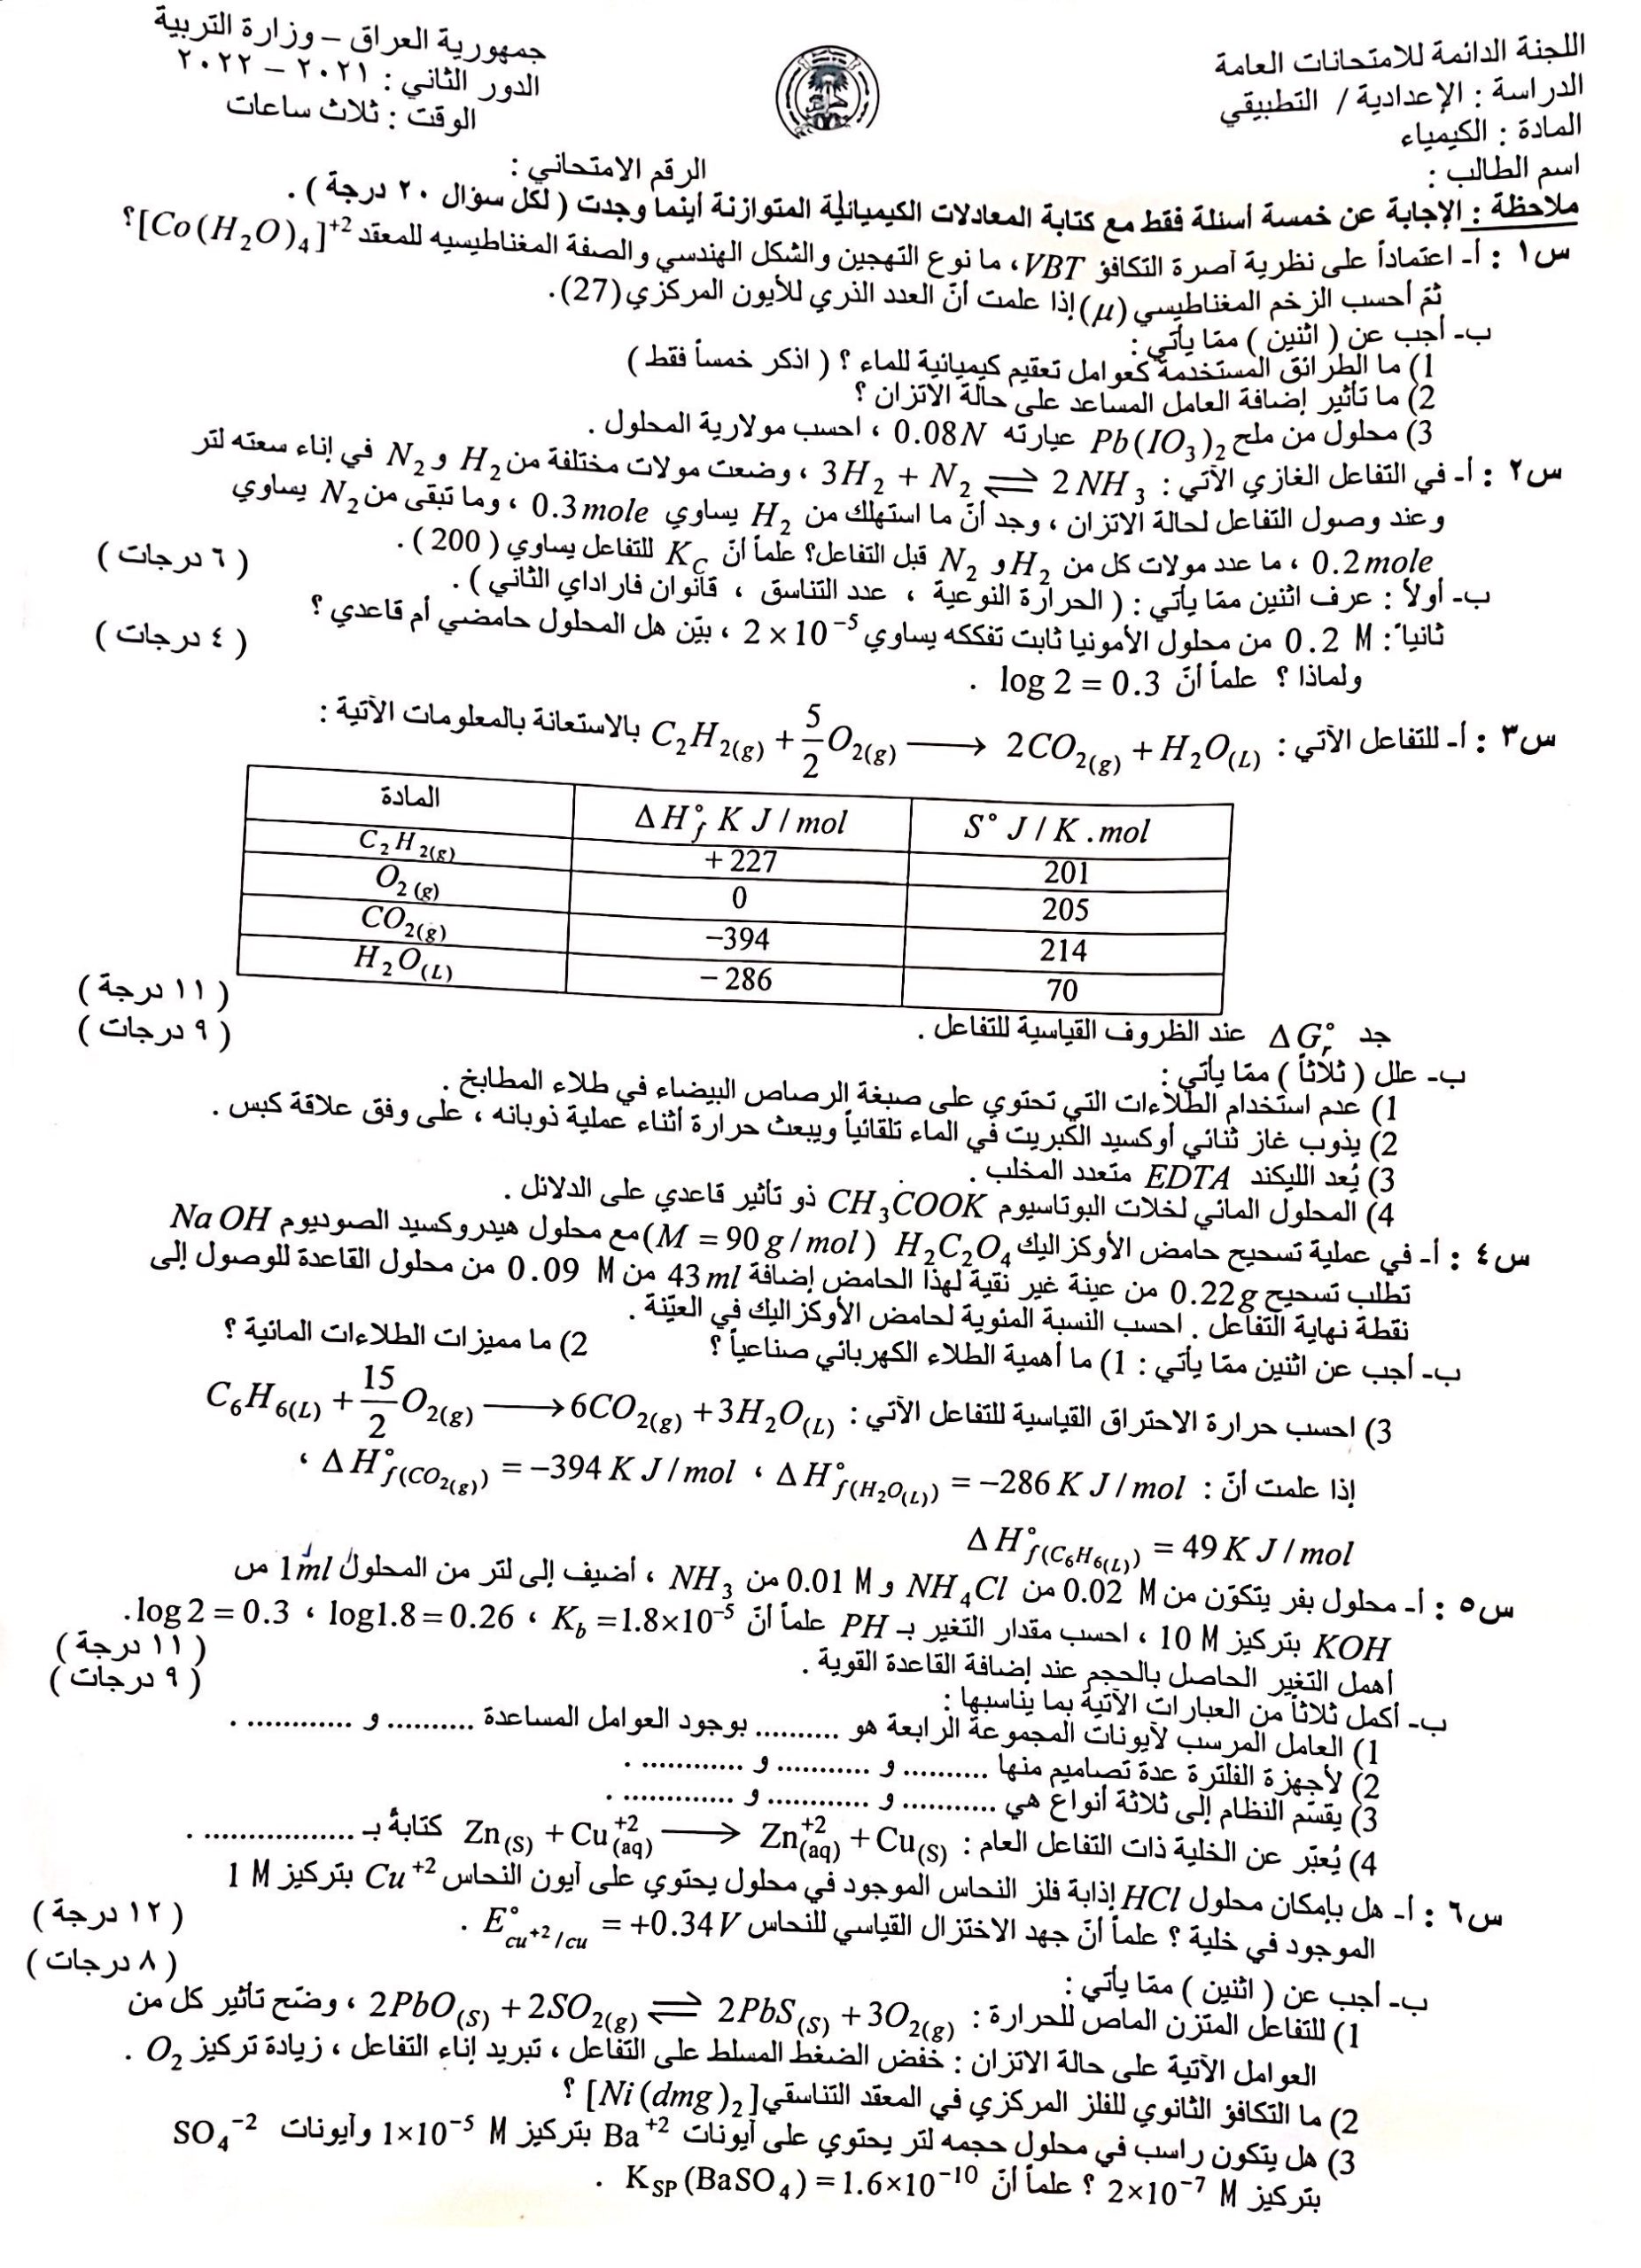 اللجنة الدائمة للامتحانات العامة
الدراسة : الإعدادية / التطبيقي
المادة : الكيمياء
اسم الطالب :
جمهورية العراق – وزارة التربية
الدور الثاني : ٢٠٢١ – ٢٠٢٢
الوقت : ثلاث ساعات
الرقم الامتحاني :
ملاحظة : الإجابة عن خمسة أسئلة فقط مع كتابة المعادلات الكيميائية المتوازنة أينما وجدت ( لكل سؤال ٢٠ درجة ) .
س١ : أ- اعتماداً على نظرية آصرة التكافؤ VBT ، ما نوع التهجين والشكل الهندسي والصفة المغناطيسيه للمعقد [Co(H₂O)₄]⁺² ؟
ثمّ أحسب الزخم المغناطيسي (μ) إذا علمت أنّ العدد الذري للأيون المركزي (27).
ب- أجب عن ( اثنين ) ممّا يأتي :
1) ما الطرائق المستخدمة كعوامل تعقيم كيميائية للماء ؟ ( اذكر خمساً فقط )
2) ما تأثير إضافة العامل المساعد على حالة الاتزان ؟
3) محلول من ملح Pb(IO₃)₂ عيارته 0.08N ، احسب مولارية المحلول .
س٢ : أ- في التفاعل الغازي الآتي : 3H₂ + N₂ ⇌ 2NH₃ ، وضعت مولات مختلفة من H₂ و N₂ في إناء سعته لتر
وعند وصول التفاعل لحالة الاتزان ، وجد أنّ ما استهلك من H₂ يساوي 0.3mole ، وما تبقى من N₂ يساوي
0.2mole ، ما عدد مولات كل من H₂ و N₂ قبل التفاعل؟ علماً أنّ K_C للتفاعل يساوي ( 200 ) .
ب- أولاً : عرف اثنين ممّا يأتي : ( الحرارة النوعية ، عدد التناسق ، قانوان فاراداي الثاني ) . ( ٦ درجات )
ثانياً : 0.2 M من محلول الأمونيا ثابت تفككه يساوي 2×10⁻⁵ ، بيّن هل المحلول حامضي أم قاعدي ؟ ( ٤ درجات )
ولماذا ؟ علماً أنّ log 2 = 0.3 .
س٣ : أ- للتفاعل الآتي : C₂H₂(g) + 5/2 O₂(g) ⟶ 2CO₂(g) + H₂O(L) بالاستعانة بالمعلومات الآتية :
المادة ΔH°f KJ/mol S° J/K.mol
C₂H₂(g) +227 201
O₂(g) 0 205
CO₂(g) −394 214
H₂O(L) −286 70
جد ΔG°r عند الظروف القياسية للتفاعل . ( ١١ درجة )
ب- علل ( ثلاثاً ) ممّا يأتي : ( ٩ درجات )
1) عدم استخدام الطلاءات التي تحتوي على صبغة الرصاص البيضاء في طلاء المطابخ .
2) يذوب غاز ثنائي أوكسيد الكبريت في الماء تلقائياً ويبعث حرارة أثناء عملية ذوبانه ، على وفق علاقة كبس .
3) يُعد الليكند EDTA متعدد المخلب .
4) المحلول المائي لخلات البوتاسيوم CH₃COOK ذو تأثير قاعدي على الدلائل .
س٤ : أ- في عملية تسحيح حامض الأوكزاليك H₂C₂O₄ ( M = 90 g/mol ) مع محلول هيدروكسيد الصوديوم NaOH
تطلب تسحيح 0.22g من عينة غير نقية لهذا الحامض إضافة 43 ml من 0.09 M من محلول القاعدة للوصول إلى
نقطة نهاية التفاعل . احسب النسبة المئوية لحامض الأوكزاليك في العيّنة .
ب- أجب عن اثنين ممّا يأتي : 1) ما أهمية الطلاء الكهربائي صناعياً ؟ 2) ما مميزات الطلاءات المائية ؟
3) احسب حرارة الاحتراق القياسية للتفاعل الآتي : C₆H₆(L) + 15/2 O₂(g) ⟶ 6CO₂(g) + 3H₂O(L)
إذا علمت أنّ : ΔH°f(H₂O(L)) = −286 KJ/mol ، ΔH°f(CO₂(g)) = −394 KJ/mol ،
ΔH°f(C₆H₆(L)) = 49 KJ/mol
س٥ : أ- محلول بفر يتكوّن من 0.02 M من NH₄Cl و 0.01 M من NH₃ ، أضيف إلى لتر من المحلول 1ml من
KOH بتركيز 10 M ، احسب مقدار التغير بـ PH علماً أنّ K_b = 1.8×10⁻⁵ ، log1.8 = 0.26 ، log2 = 0.3 .
أهمل التغير الحاصل بالحجم عند إضافة القاعدة القوية . ( ١١ درجة )
ب- أكمل ثلاثاً من العبارات الآتية بما يناسبها : ( ٩ درجات )
1) العامل المرسب لأيونات المجموعة الرابعة هو .......... بوجود العوامل المساعدة .......... و ............ .
2) لأجهزة الفلترة عدة تصاميم منها .......... و ........... و ............ .
3) يقسّم النظام إلى ثلاثة أنواع هي ........... و ............ و ............. .
4) يُعبّر عن الخلية ذات التفاعل العام : Zn(S) + Cu⁺²(aq) ⟶ Zn⁺²(aq) + Cu(S) كتابةً بـ .................. .
س٦ : أ- هل بإمكان محلول HCl إذابة فلز النحاس الموجود في محلول يحتوي على آيون النحاس Cu⁺² بتركيز 1 M
الموجود في خلية ؟ علماً أنّ جهد الاختزال القياسي للنحاس E°cu⁺²/cu = +0.34V . ( ١٢ درجة )
ب- أجب عن ( اثنين ) ممّا يأتي : ( ٨ درجات )
1) للتفاعل المتزن الماص للحرارة : 2PbO(S) + 2SO₂(g) ⇌ 2PbS(S) + 3O₂(g) ، وضّح تأثير كل من
العوامل الآتية على حالة الاتزان : خفض الضغط المسلط على التفاعل ، تبريد إناء التفاعل ، زيادة تركيز O₂ .
2) ما التكافؤ الثانوي للفلز المركزي في المعقد التناسقي [Ni(dmg)₂] ؟
3) هل يتكون راسب في محلول حجمه لتر يحتوي على أيونات Ba⁺² بتركيز 1×10⁻⁵ M وآيونات SO₄⁻²
بتركيز 2×10⁻⁷ M ؟ علماً أنّ K_SP(BaSO₄) = 1.6×10⁻¹⁰ .